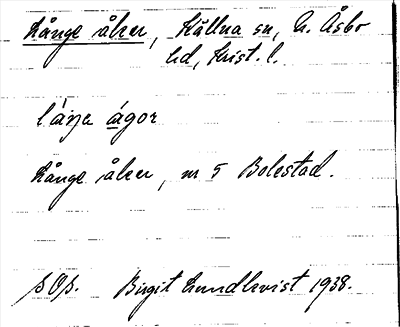 Långe åker, Källna sn, N. Åsbo
hd, Krist. l.
láŋa ágər
Långe åker, nr 5 Bolestad.
SOS. Birgit Lundkvist 1938.